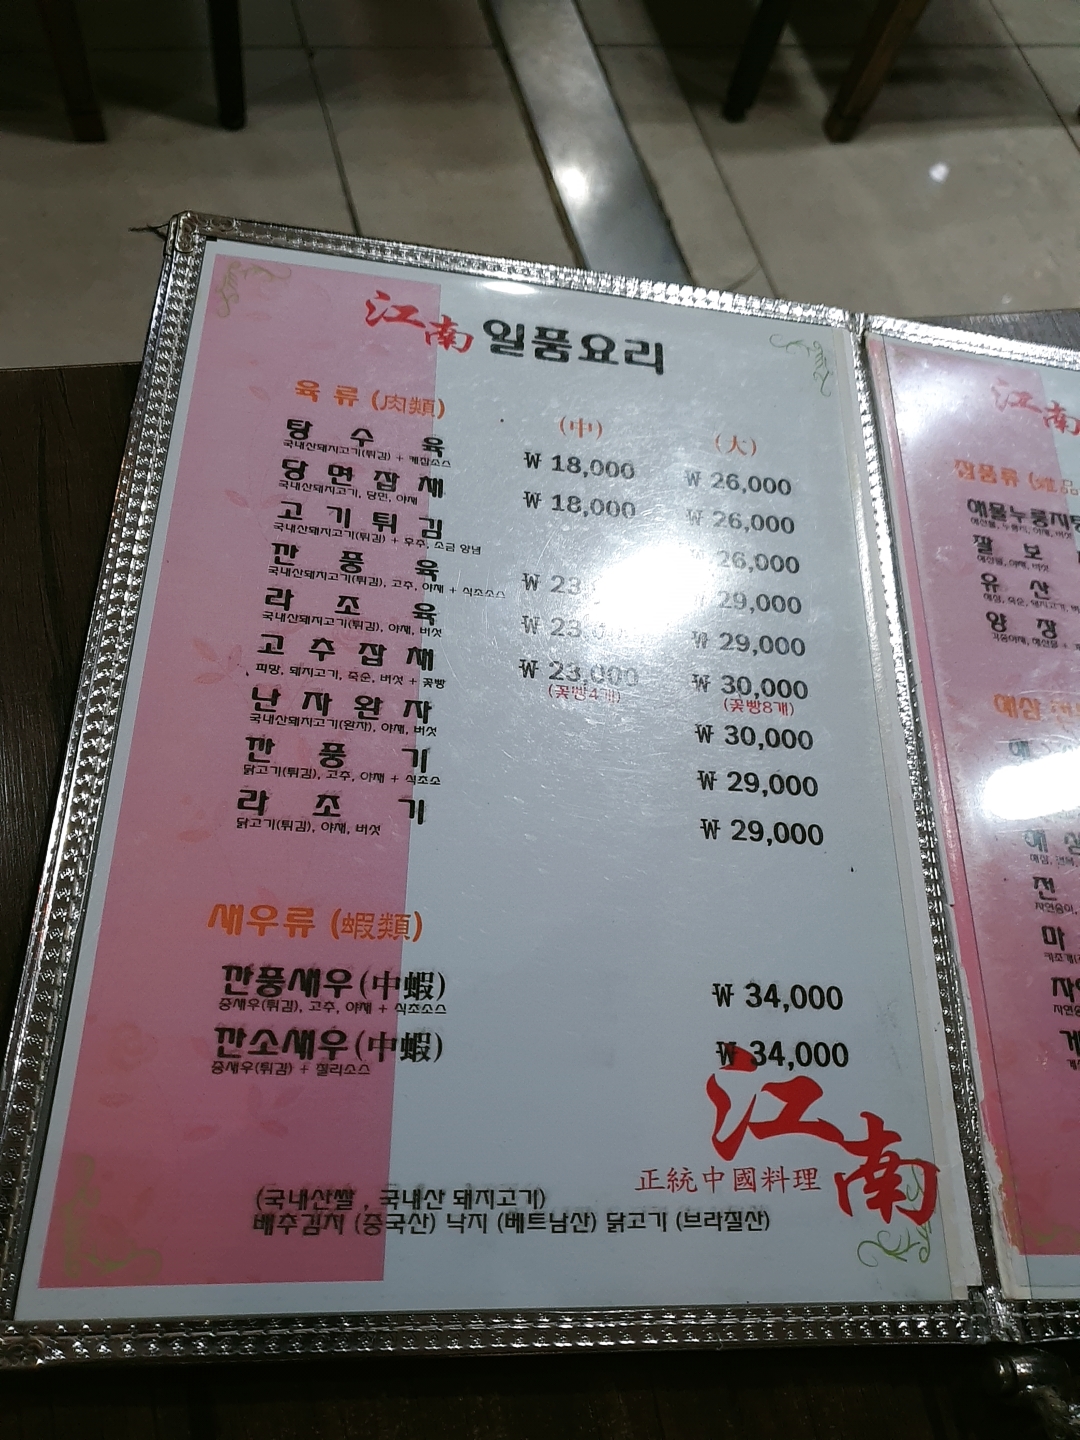 江南 일품요리
육류 (肉類)
(中) (大)
탕수육 ₩ 18,000 ₩ 26,000
국내산돼지고기(튀김) + 케찹소스
당면잡채 ₩ 18,000 ₩ 26,000
국내산돼지고기, 당면, 야채
고기튀김 ₩ 26,000
국내산돼지고기(튀김) + 후추, 소금 양념
깐풍육 ₩ 23, ₩ 29,000
국내산돼지고기(튀김), 고추, 야채 + 식초소스
라조육 ₩ 23,000 ₩ 29,000
국내산돼지고기(튀김), 야채, 버섯
고추잡채 ₩ 23,000 ₩ 30,000
피망, 돼지고기, 죽순, 버섯 + 꽃빵 (꽃빵4개) (꽃빵8개)
난자완자 ₩ 30,000
국내산돼지고기(완자), 야채, 버섯
깐풍기 ₩ 29,000
닭고기(튀김), 고추, 야채 + 식초소
라조기 ₩ 29,000
닭고기(튀김), 야채, 버섯
새우류 (蝦類)
깐풍새우(中蝦) ₩ 34,000
중새우(튀김), 고추, 야채 + 식초소스
깐소새우(中蝦) ₩ 34,000
중새우(튀김) + 칠리소스
江南
正統中國料理
(국내산쌀 , 국내산 돼지고기)
배추김치 (중국산) 낙지 (베트남산) 닭고기 (브라질산)
江南
잡품류
해물누룽지탕
해산물, 누룽지, 야채, 버섯
짤보
해삼, 야채, 버섯
유산
양장
해삼
전
마